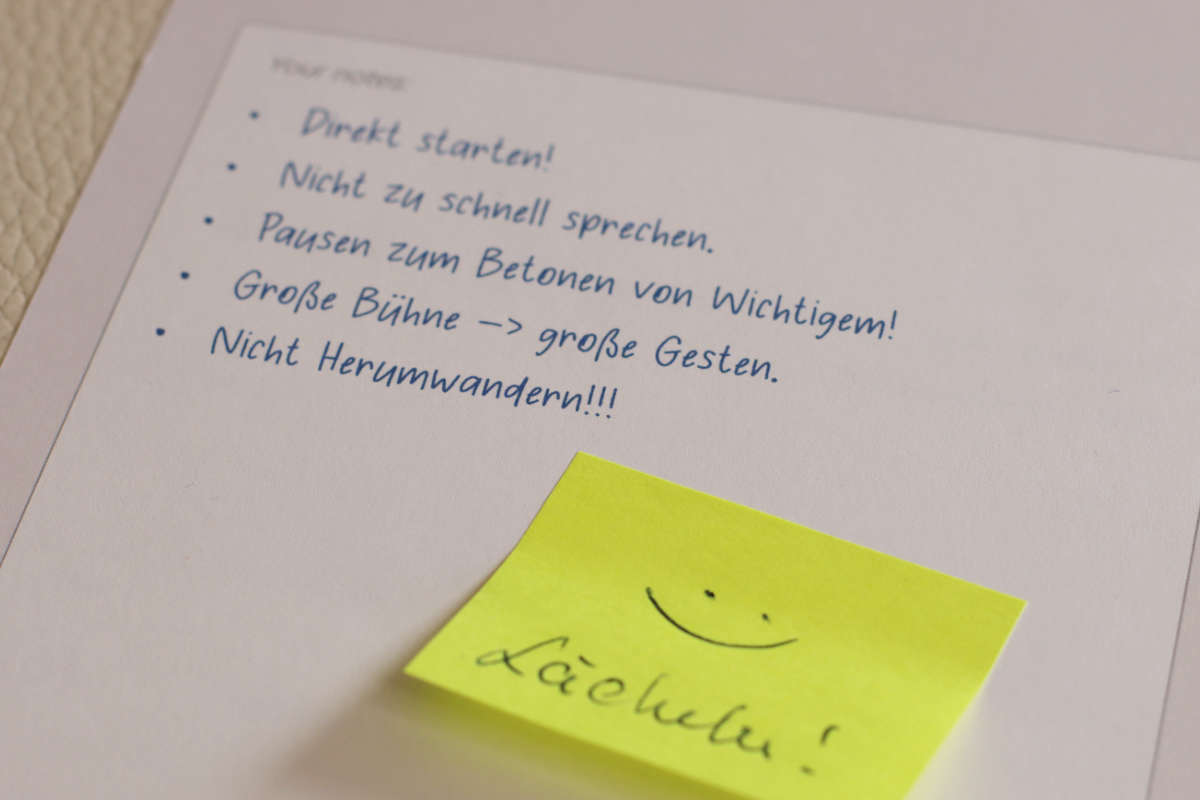 Your notes:
• Direkt starten!
• Nicht zu schnell sprechen.
• Pausen zum Betonen von Wichtigem!
• Große Bühne —> große Gesten.
• Nicht Herumwandern!!!
Lächeln!